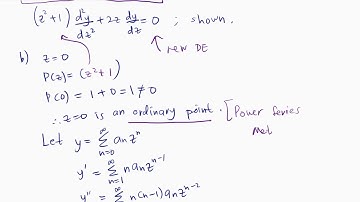 (z²+1) d²y/dz² + 2z dy/dz = 0 ; shown.
new DE
b) z=0
P(z) = (z²+1)
P(0) = 1+0 = 1 ≠ 0
∴ z=0 is an ordinary point. [Power series
Met
Let y = ∞∑n=0 anzⁿ
y' = ∞∑n=1 n anzⁿ⁻¹
y'' = ∞∑ n(n-1) anzⁿ⁻²